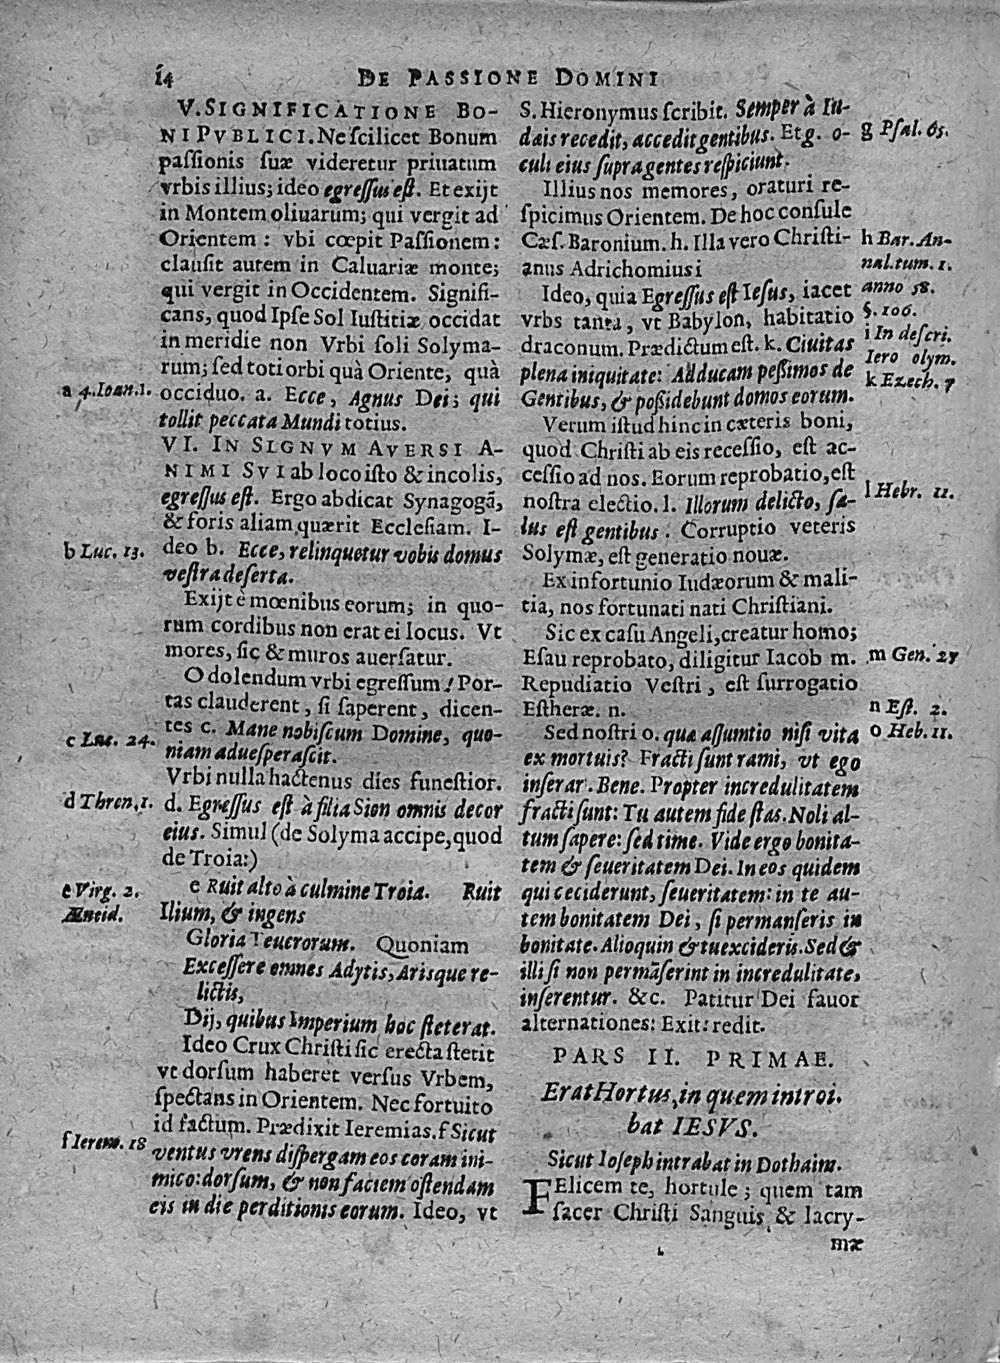 14 DE PASSIONE DOMINI
V. SIGNIFICATIONE BO-
NI PVBLICI. Ne scilicet Bonum
passionis suæ videretur priuatum
vrbis illius; ideo egressus est. Et exijt
in Montem oliuarum; qui vergit ad
Orientem: vbi cœpit Passionem:
clausit autem in Caluariæ monte;
qui vergit in Occidentem. Signifi-
cans, quod Ipse Sol Iustitiæ occidat
in meridie non Vrbi soli Solyma-
rum; sed toti orbi quà Oriente, quà
a 4. Ioan. 1.
occiduo. a. Ecce, Agnus Dei; qui
tollit peccata Mundi totius.
VI. IN SIGNVM AVERSI A-
NIMI SVI ab loco isto & incolis,
egressus est. Ergo abdicat Synagogã,
& foris aliam quærit Ecclesiam. I-
b Luc. 13.
deo b. Ecce, relinquetur vobis domus
vestra deserta.
Exijt è mœnibus eorum; in quo-
rum cordibus non erat ei locus. Vt
mores, sic & muros auersatur.
O dolendum vrbi egressum! Por-
tas clauderent, si saperent, dicen-
c Luc. 24.
tes c. Mane nobiscum Domine, quo-
niam aduesperascit.
Vrbi nulla hactenus dies funestior.
d Thren. 1.
d. Egressus est à filia Sion omnis decor
eius. Simul (de Solyma accipe, quod
de Troia:)
e Virg. 2.
Æneid.
e Ruit alto à culmine Troia. Ruit
Ilium, & ingens
Gloria Teucrorum. Quoniam
Excessere omnes Adytis, Arisque re-
lictis,
Dij, quibus Imperium hoc steterat.
Ideo Crux Christi sic erecta stetit
vt dorsum haberet versus Vrbem,
spectans in Orientem. Nec fortuito
id factum. Prædixit Ieremias. f Sicut
f Ierem. 18
ventus vrens dispergam eos coram ini-
mico: dorsum, & non faciem ostendam
eis in die perditionis eorum. Ideo, vt
S. Hieronymus scribit. Semper à Iu-
dais recedit, accedit gentibus. Et g. o-
g Psal. 65.
culi eius supra gentes respiciunt.
Illius nos memores, oraturi re-
spicimus Orientem. De hoc consule
Cæs. Baronium. h. Illa vero Christi-
h Bar. An-
nal. tum. 1.
anno 58.
§. 106.
anus Adrichomius i
i In descri.
Iero olym.
Ideo, quia Egressus est Iesus, iacet
vrbs tanta, vt Babylon, habitatio
draconum. Prædictum est. k. Ciuitas
k Ezech. 7
plena iniquitate: Adducam peßimos de
Gentibus, & poßidebunt domos eorum.
Verum istud hinc in cæteris boni,
quod Christi ab eis recessio, est ac-
cessio ad nos. Eorum reprobatio, est
nostra electio. l. Illorum delicto, sa-
l Hebr. 11.
lus est gentibus. Corruptio veteris
Solymæ, est generatio nouæ.
Ex infortunio Iudæorum & mali-
tia, nos fortunati nati Christiani.
Sic ex casu Angeli, creatur homo;
Esau reprobato, diligitur Iacob m.
m Gen. 27
Repudiatio Vestri, est surrogatio
Estheræ. n.
n Est. 2.
Sed nostri o. quæ assumtio nisi vita
o Heb. 11.
ex mortuis? Fracti sunt rami, vt ego
inserar. Bene. Propter incredulitatem
fracti sunt: Tu autem fide stas. Noli al-
tum sapere: sed time. Vide ergo bonita-
tem & seueritatem Dei. In eos quidem
qui ceciderunt, seueritatem: in te au-
tem bonitatem Dei, si permanseris in
bonitate. Alioquin & tu excideris. Sed &
illi si non permãserint in incredulitate,
inserentur. &c. Patitur Dei fauor
alternationes: Exit: redit.
PARS II. PRIMAE.
Erat Hortus, in quem introi.
bat IESVS.
Sicut Ioseph intrabat in Dothaim.
FElicem te, hortule; quem tam
sacer Christi Sanguis & lacry-
mæ